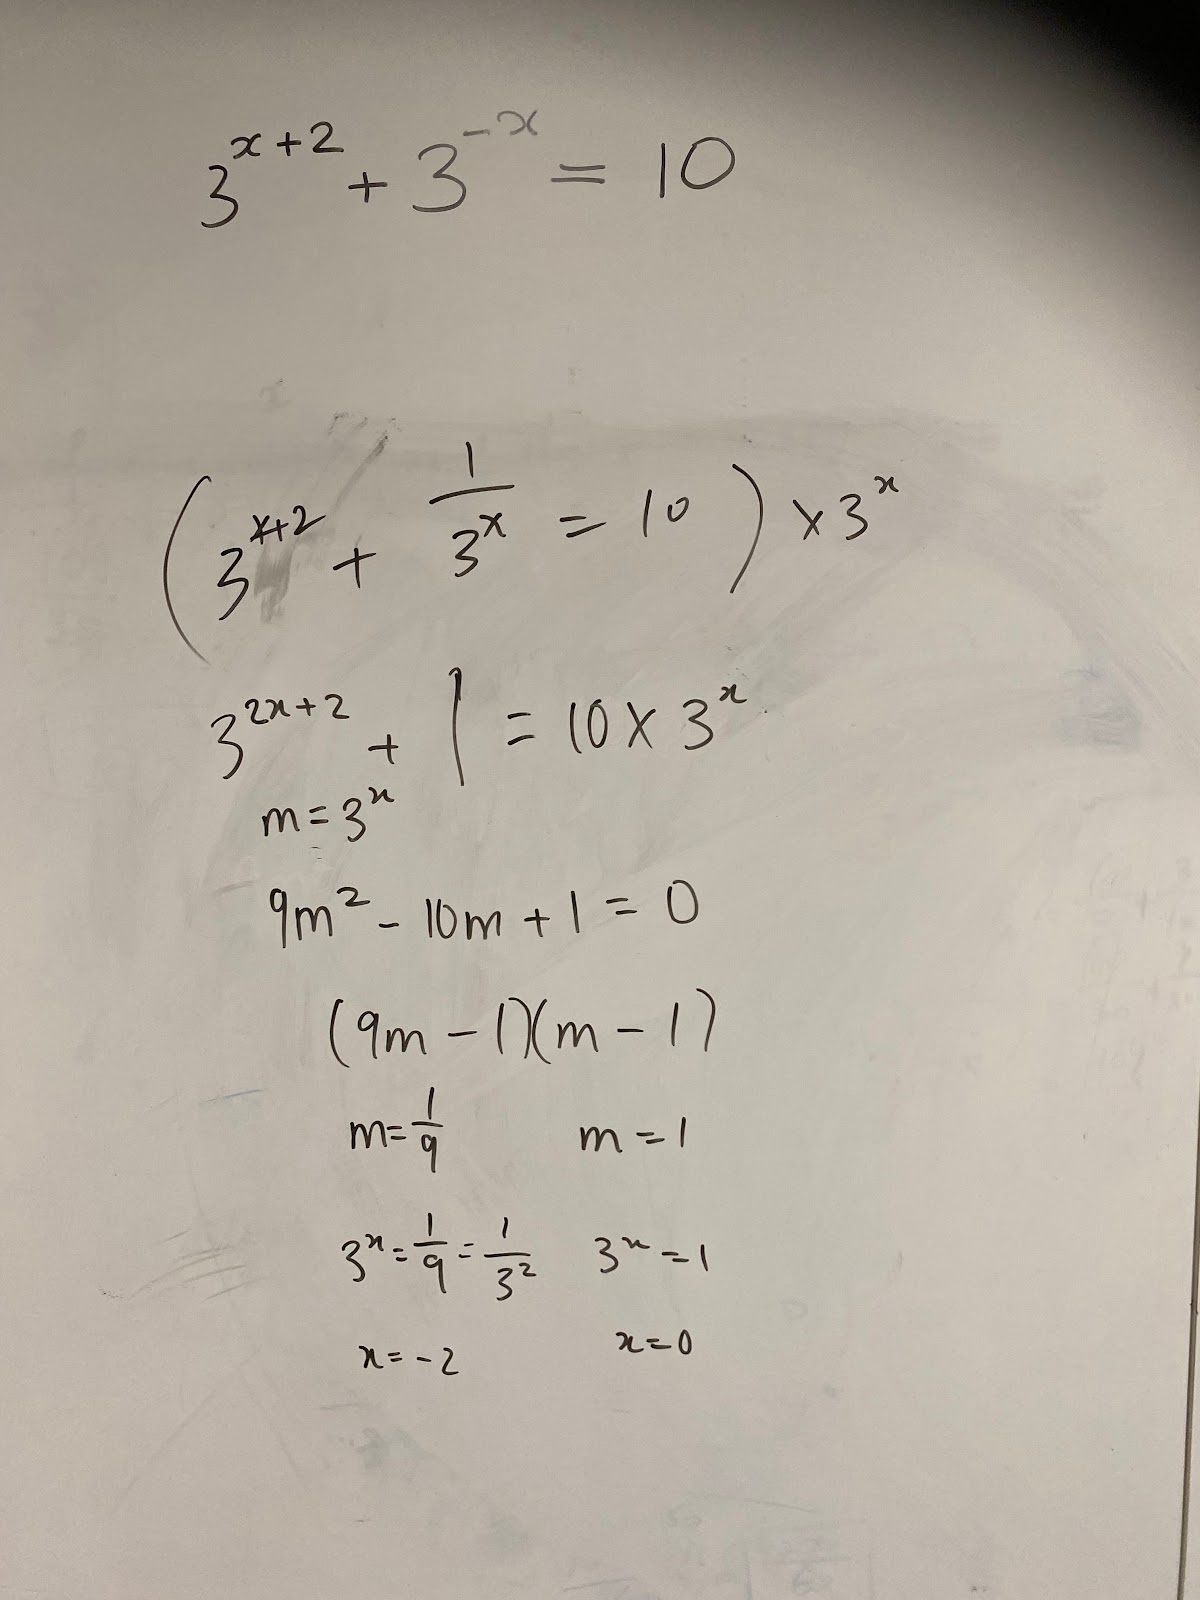 3^{x+2} + 3^{-x} = 10
(3^{x+2} + \frac{1}{3^x} = 10) × 3^x
3^{2x+2} + 1 = 10 × 3^x
m = 3^x
9m^2 - 10m + 1 = 0
(9m - 1)(m - 1)
m = \frac{1}{9} m = 1
3^x = \frac{1}{9} = \frac{1}{3^2} 3^x = 1
x = -2 x = 0